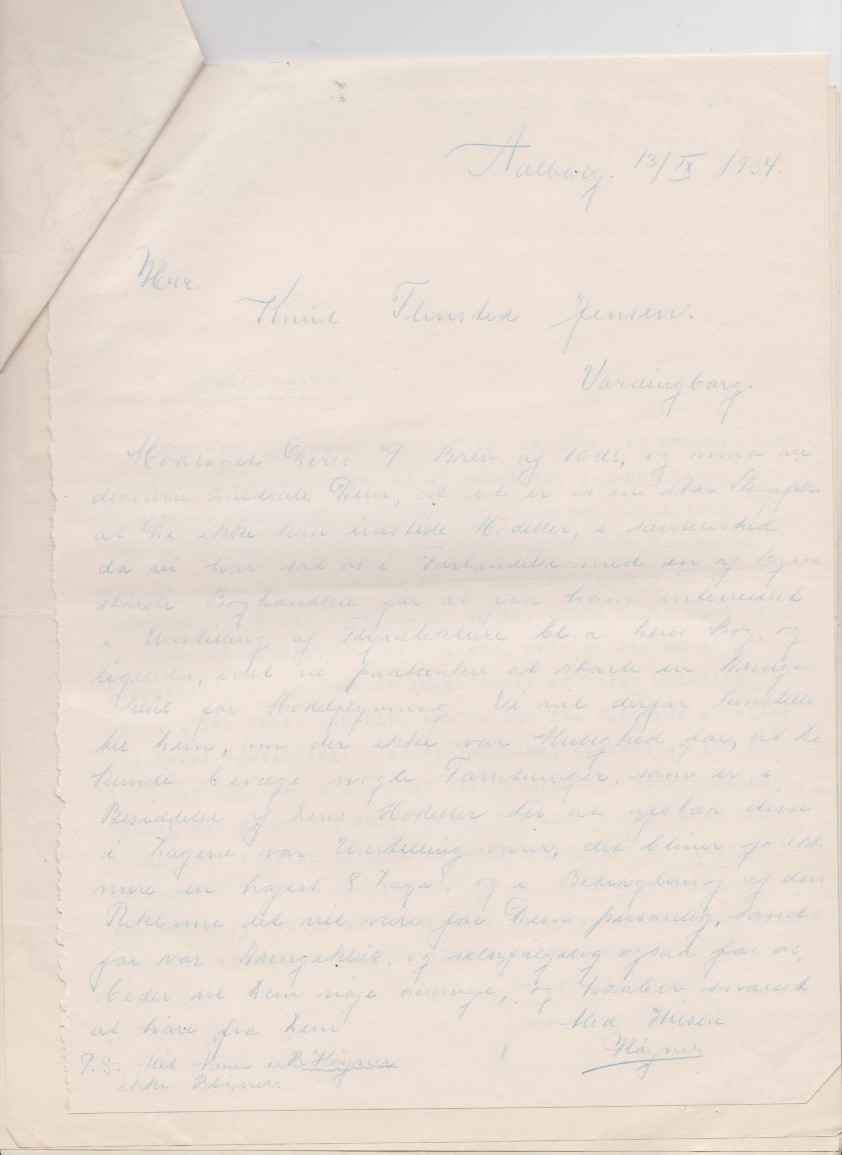 Aalborg. 13/IX 1934.
Herr.
Knud Flensted Jensen.
Vordingborg.
Modtaget Deres Brev af 10ds, og maa vi
desværre meddele Dem, at det er os en stor Skuffelse
at De ikke kan udstille Modeller, i særdeleshed
da vi har sat os i Forbindelse med en af Byens
største Boghandlere for at faa ham interesseret
i Udstilling af Flyvelitteratur bl. a Deres Bog, og
ligeledes, idet vi paatænker at starte en Drenge-
klub for Modelflyvning Vi vil derfor henstille
til Dem, om der ikke var Mulighed for, at De
kunde bevæge nogle Forretninger, som er i
Besiddelse af Deres Modeller til at afstaa disse
i Dagene vor Udstilling varer, det bliver jo ikke
mere en højest 8 Dage. og i Betragtning af den
Reklame det vil være for Dem personlig, samt
for vor Drengeklub, og selvfølgelig også for os,
beder vi Dem nøje overveje, og haaber snarest
at høre fra Dem
Med Hilsen
Høyner
P.S. Mit Navn er B. Høyner
ikke Bløyner.